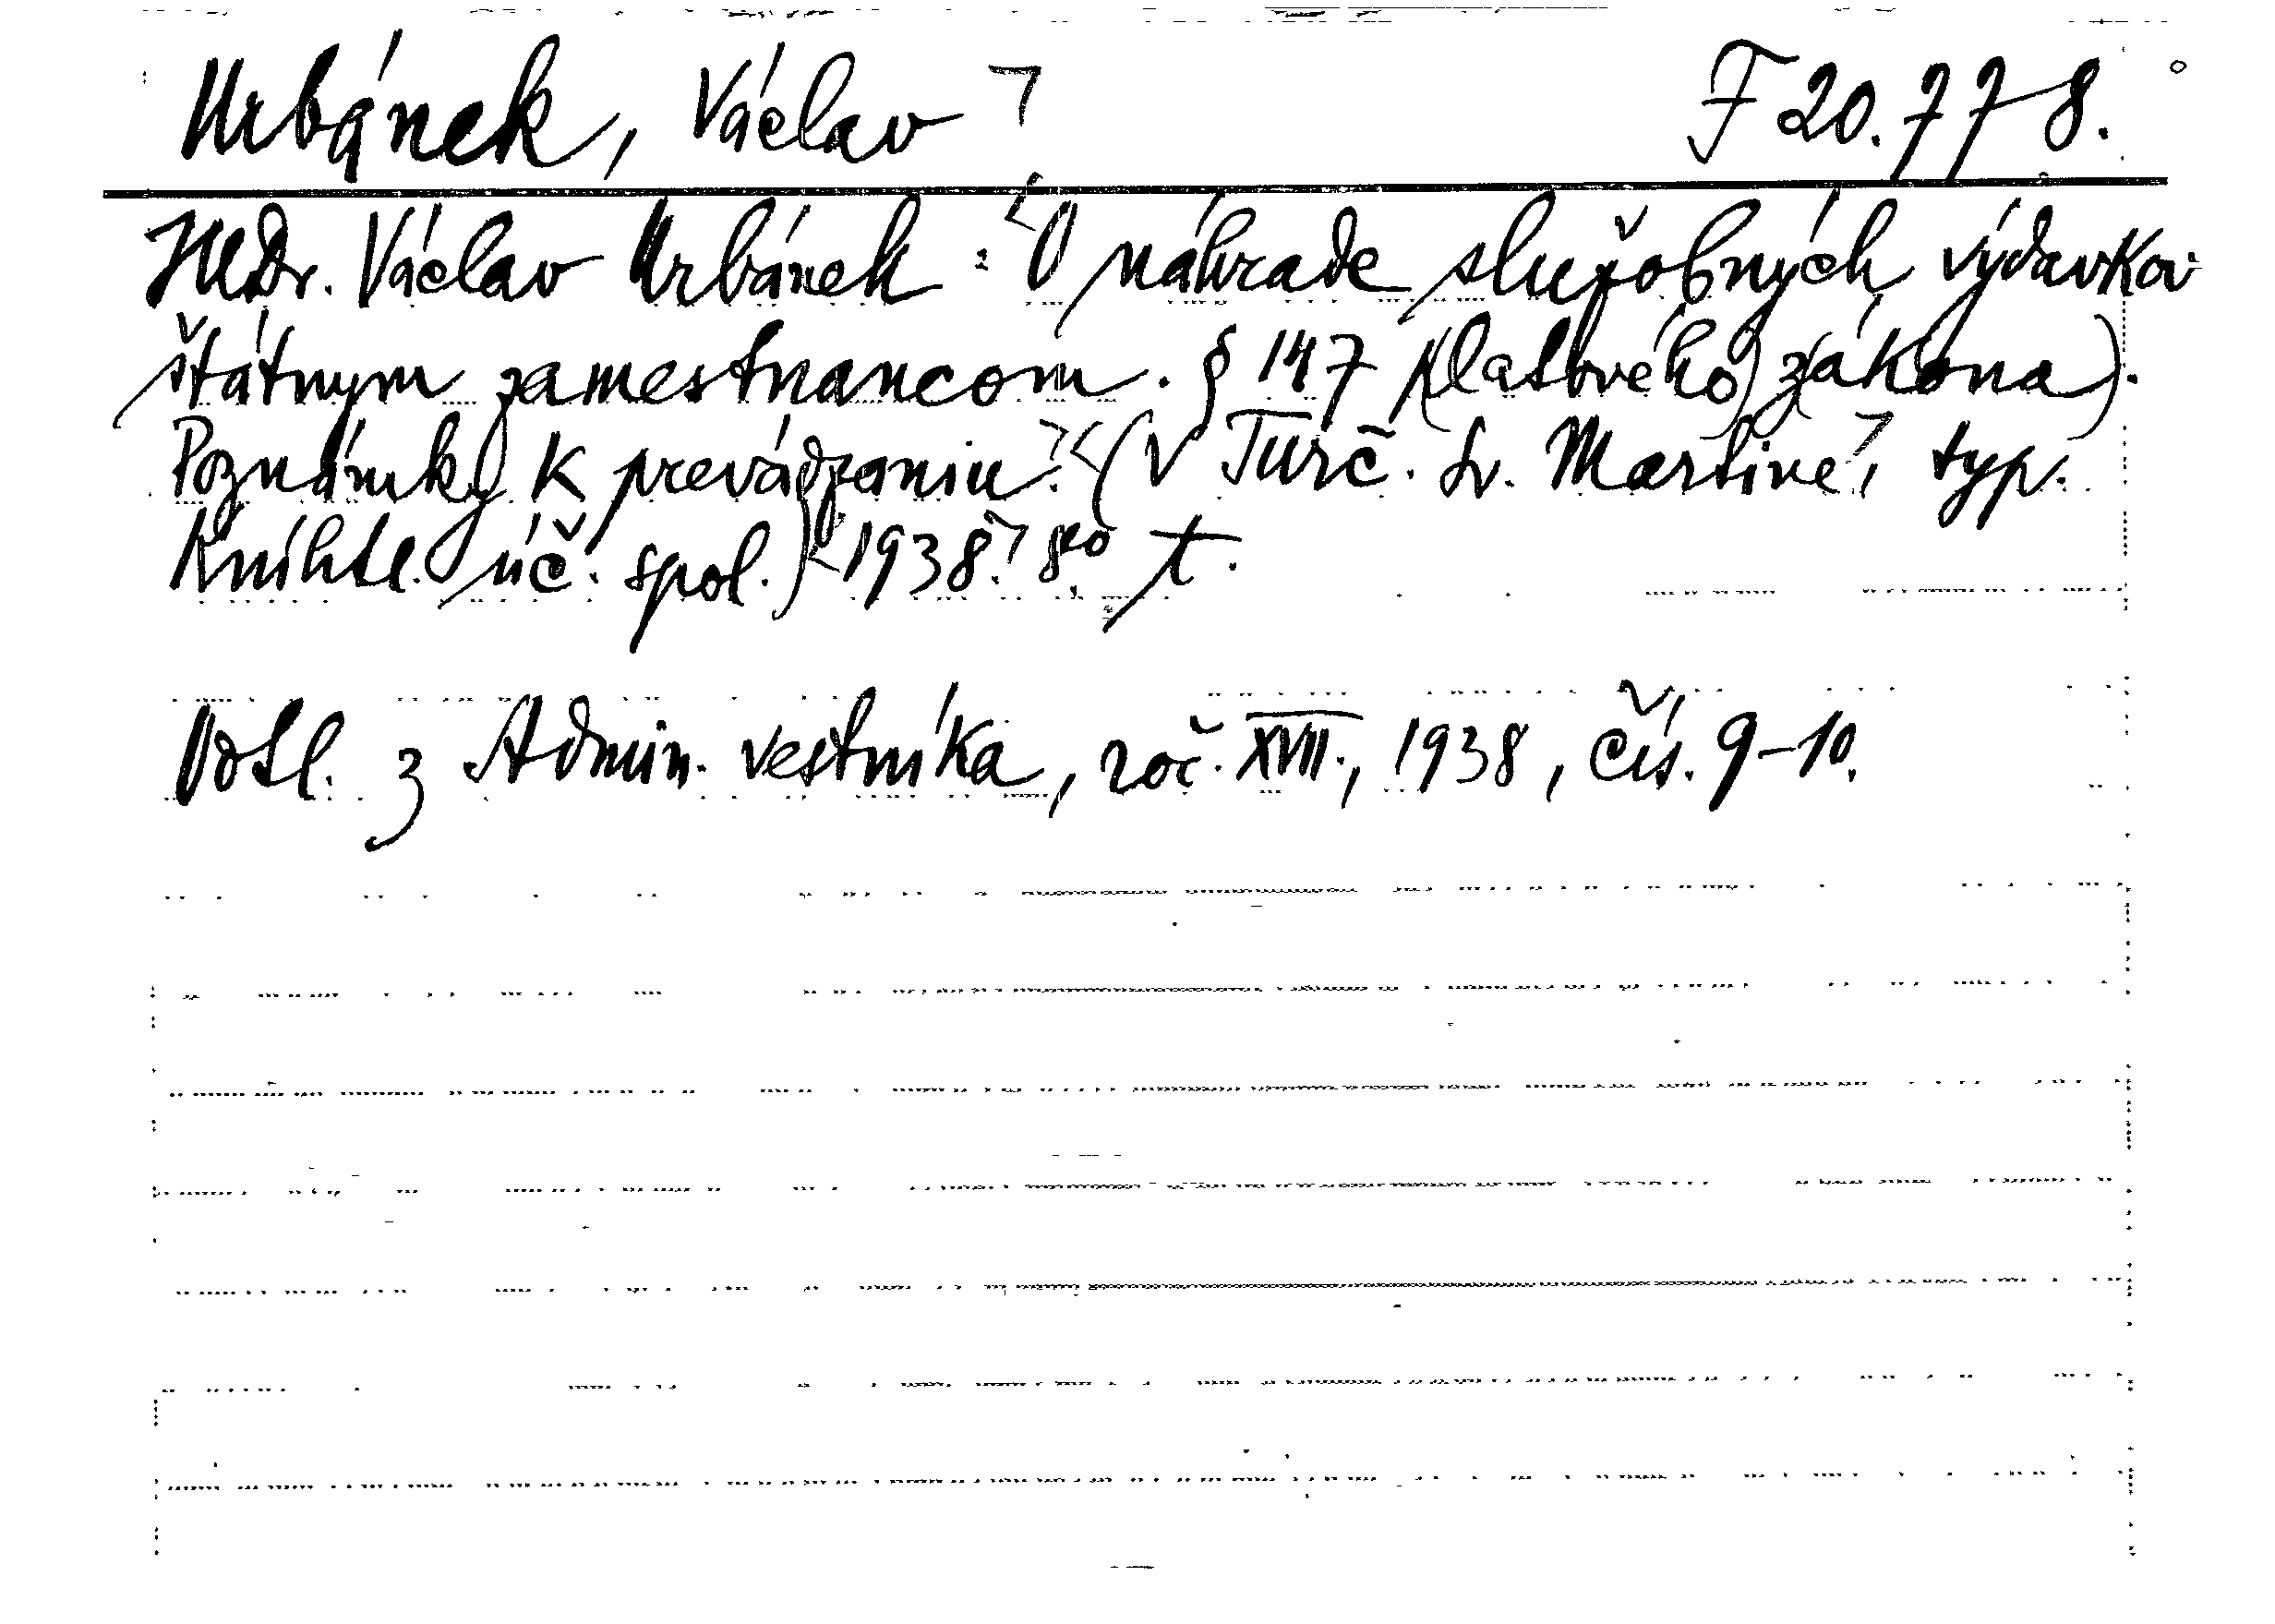 Urbánek, Václav ⁊ F 20.778.
JUDr. Václav Urbánek: <O náhrade služobných výdavkov
štátnym zamestnancom. § 147 (platového) zákona).
Poznámky k prevádzaniu.> <(V Turč. Sv. Martine, typ.
Kníhtl. úč. spol.) <1938.> 8° t.
Odtl. z Admin. vestníka, roč. XVIII., 1938, čís. 9-10.